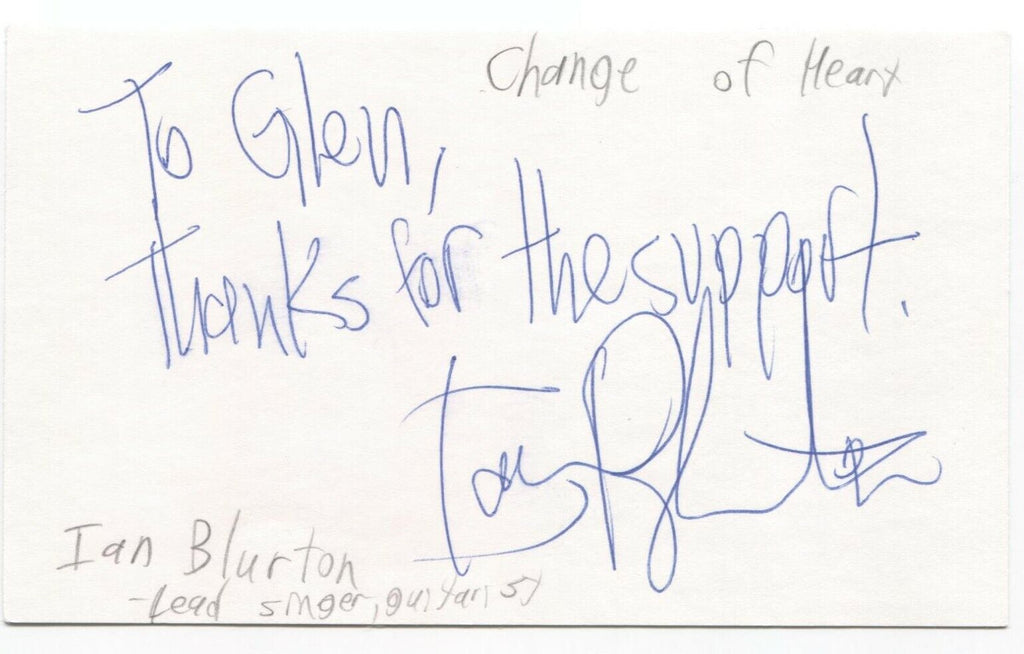 Change of Heart
To Glen,
thanks for the support.
Ian Blurton
Ian Blurton
-Lead singer, guitarist